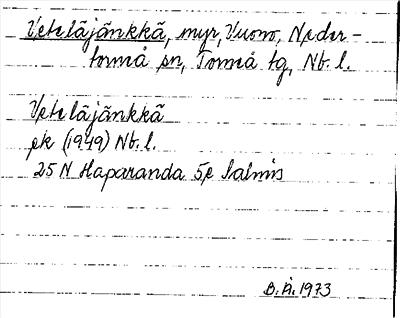 Veteläjänkkä, myr, Vuono, Neder-
torneå sn, Torneå tg, Nb. l.
Veteläjänkkä
ek (1949) Nb. l.
25 N Haparanda 5e Salmis
B. Å. 1973